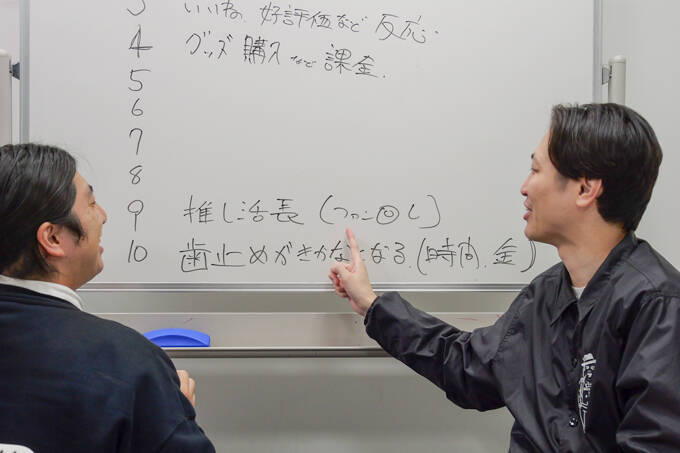 3 いいね、好評価など反応
4 グッズ購入など課金
5
6
7
8
9 推し活長（ファン回し）
10 歯止めがきかなくなる。（時間、金）